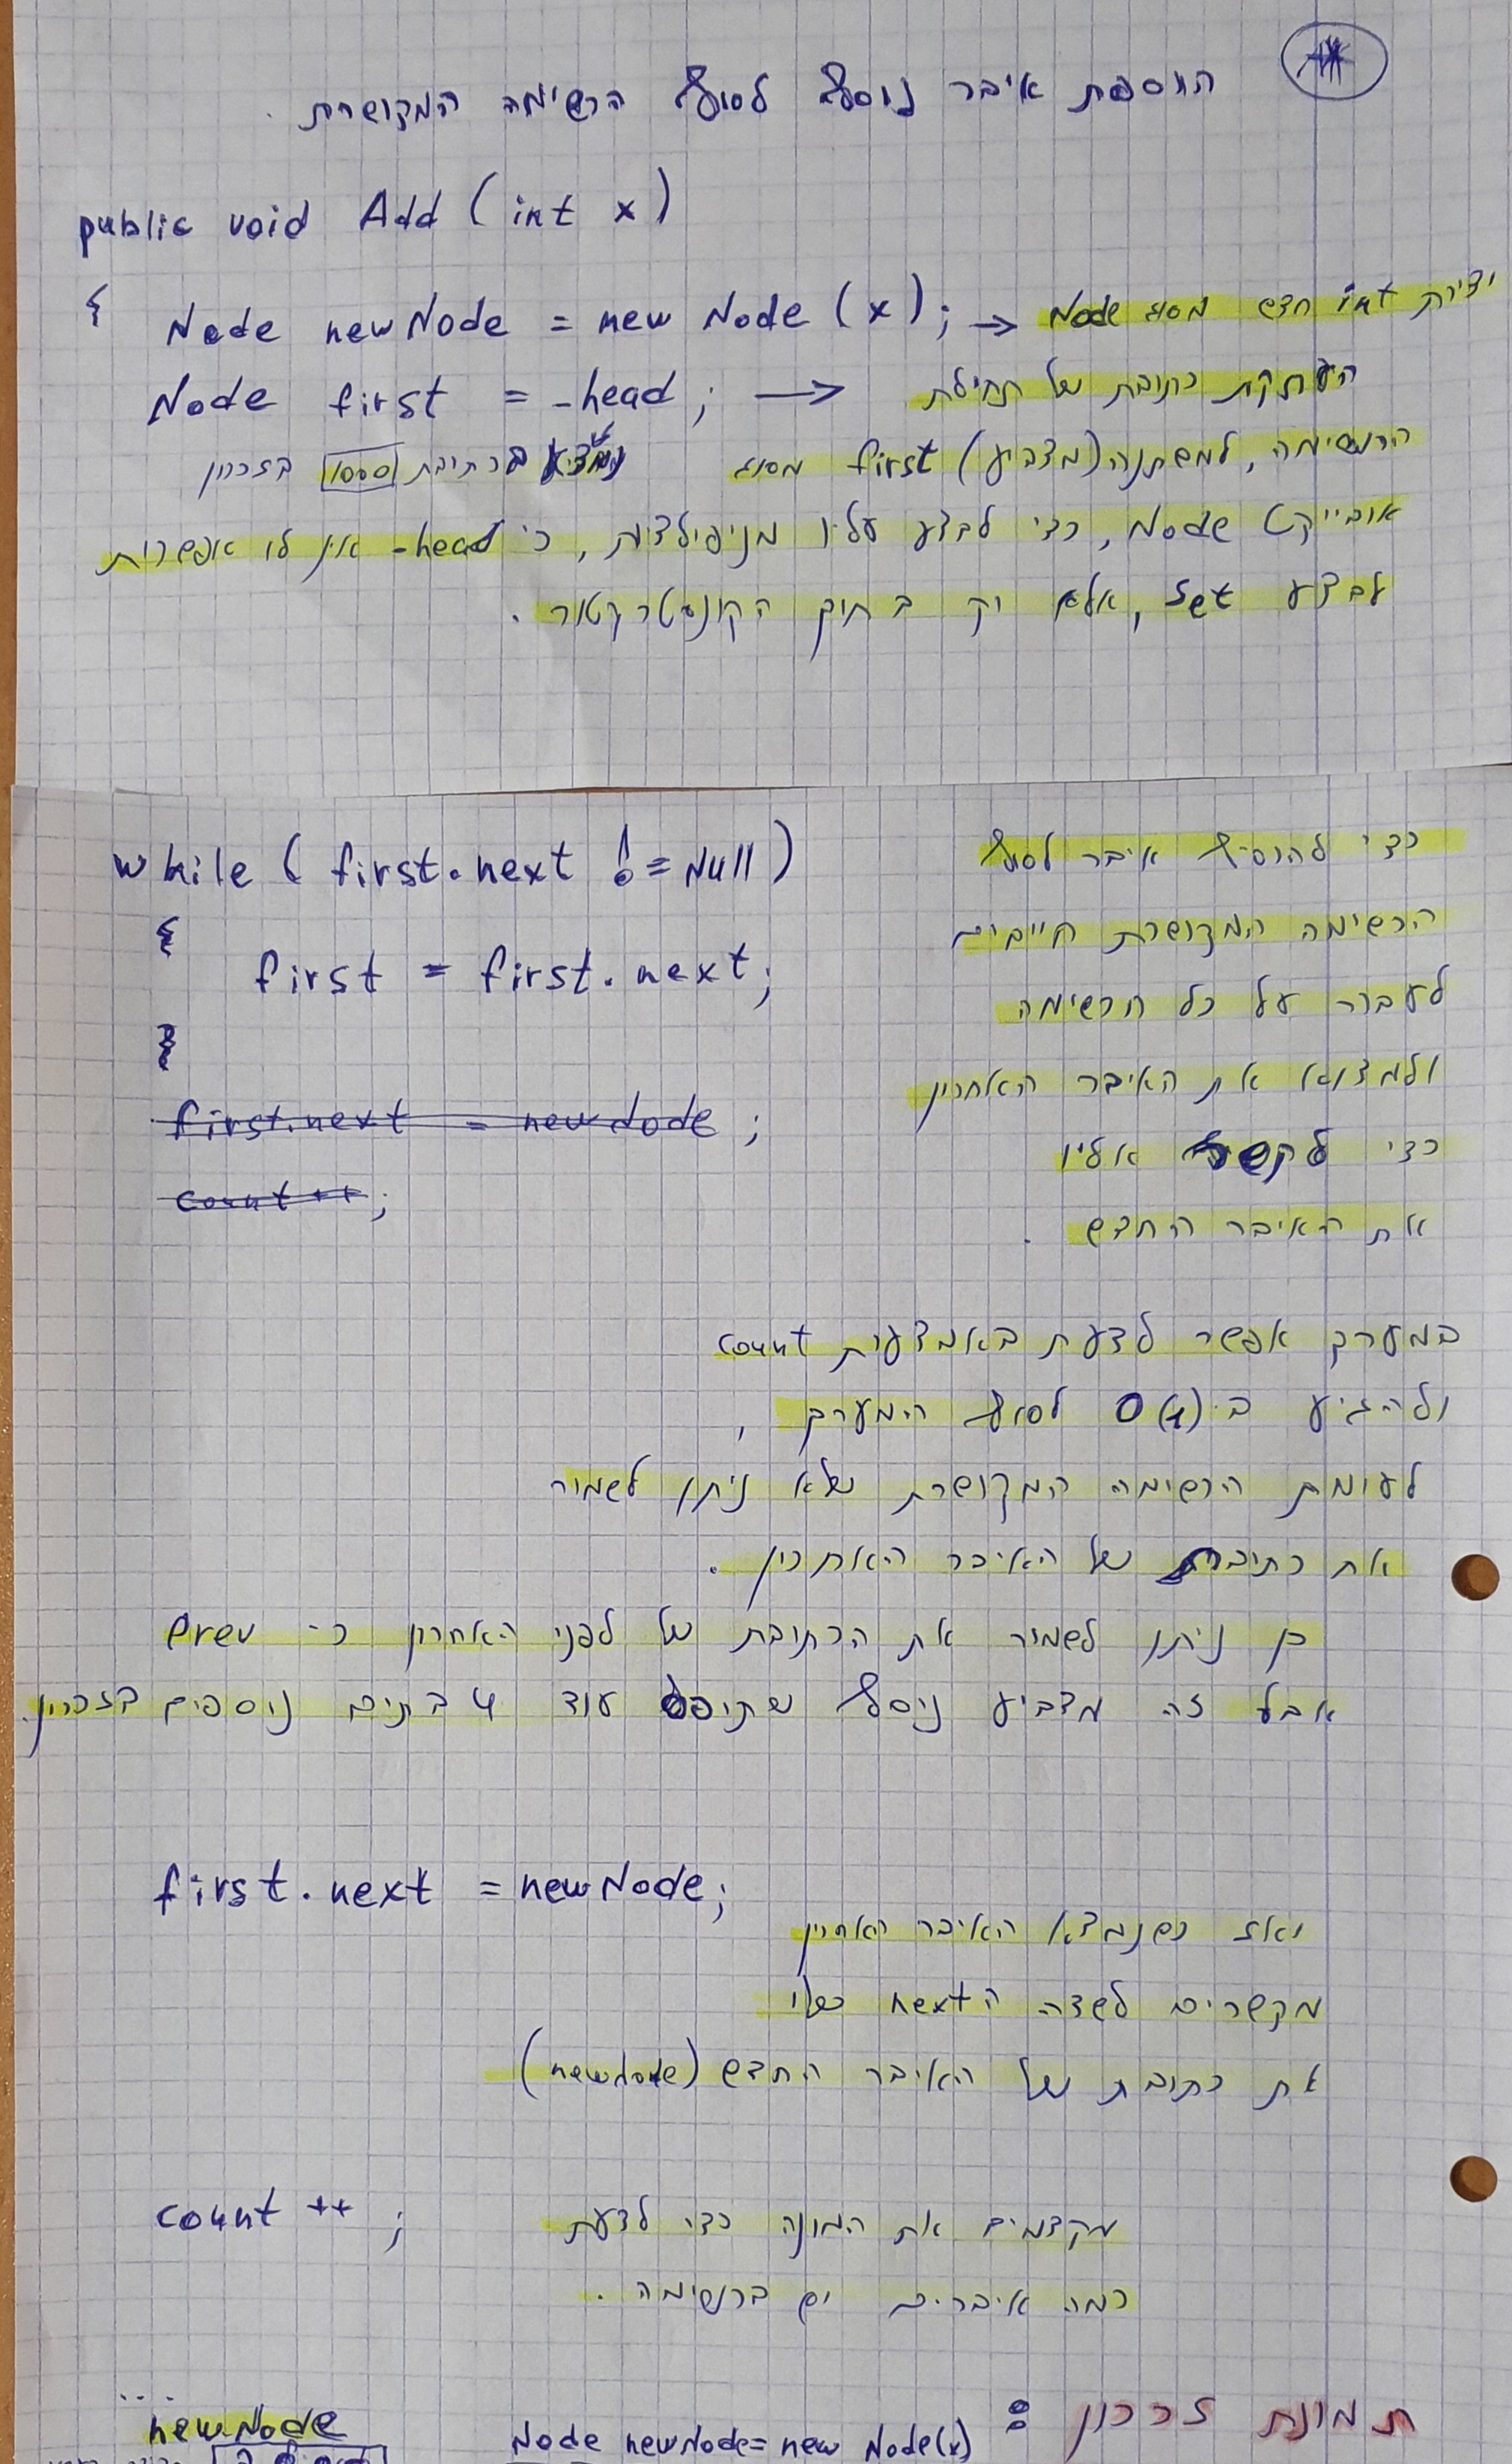 הוספת איבר נוסף לסוף הרשימה המקושרת.
public void Add (int x)
{ Node newNode = new Node (x); → יצירת int חדש מסוג Node
Node first = _head; → העתקת כתובת של תחילת
הרשימה, למשתנה (מצביע) first מסוג
בכתובת 1000 בזכרון
אובייקט Node, כדי לבצע עליו מניפולציות, כי _head אין לו אפשרות
לבצע set, אלא רק בתוך הקונסטרקטור.
while (first.next != Null)
{
first = first.next;
}
first.next = newNode;
count++;
כדי להוסיף איבר לסוף
הרשימה המקושרת חייבים
לעבור על כל הרשימה
ולמצוא את האיבר האחרון
כדי לקשר אליו
את האיבר החדש.
במערך אפשר לדעת באמצעות count
ולהגיע ב O(1) לסוף המערך,
לעומת הרשימה המקושרת שלא ניתן לשמור
את כתובת של האיבר האחרון.
כן ניתן לשמור את הכתובת של לפני האחרון כ- prev
אבל זה מצביע נוסף שתופס עוד 4 בתים נוספים בזכרון.
first.next = newNode;
ואז כשנמצא האיבר האחרון
מקשרים לשדה ה next שלו
את כתובת של האיבר החדש (newNode)
count ++;
מקדמים את המונה כדי לדעת
כמה איברים יש ברשימה.
תמונת זכרון :
newNode
Node newNode= new Node(x)